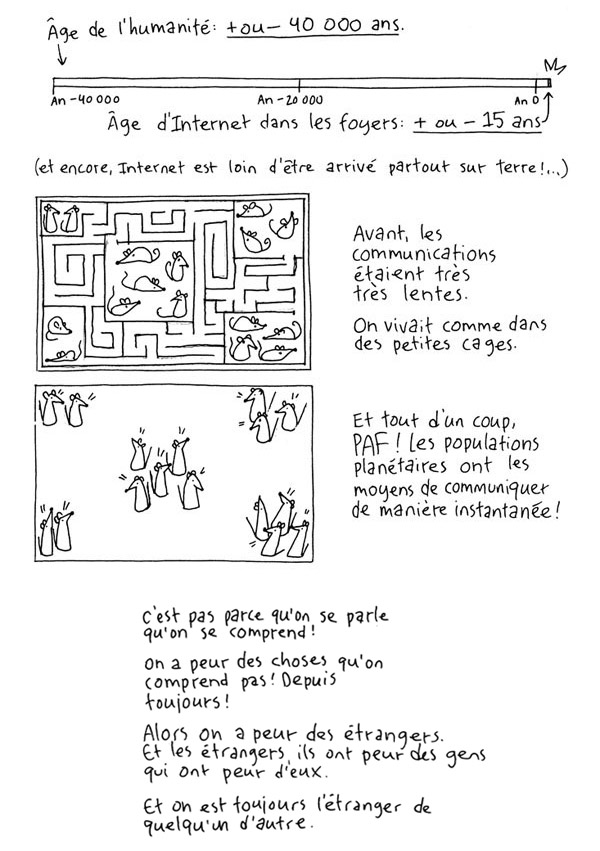 Âge de l'humanité: + ou - 40 000 ans.
An -40 000
An -20 000
An 0
Âge d'Internet dans les foyers: + ou - 15 ans
(et encore, Internet est loin d'être arrivé partout sur terre!...)
Avant, les
communications
étaient très
très lentes.
On vivait comme dans
des petites cages.
Et tout d'un coup,
PAF! Les populations
planétaires ont les
moyens de communiquer
de manière instantanée!
C'est pas parce qu'on se parle
qu'on se comprend!
On a peur des choses qu'on
comprend pas! Depuis
toujours!
Alors on a peur des étrangers.
Et les étrangers, ils ont peur des gens
qui ont peur d'eux.
Et on est toujours l'étranger de
quelqu'un d'autre.